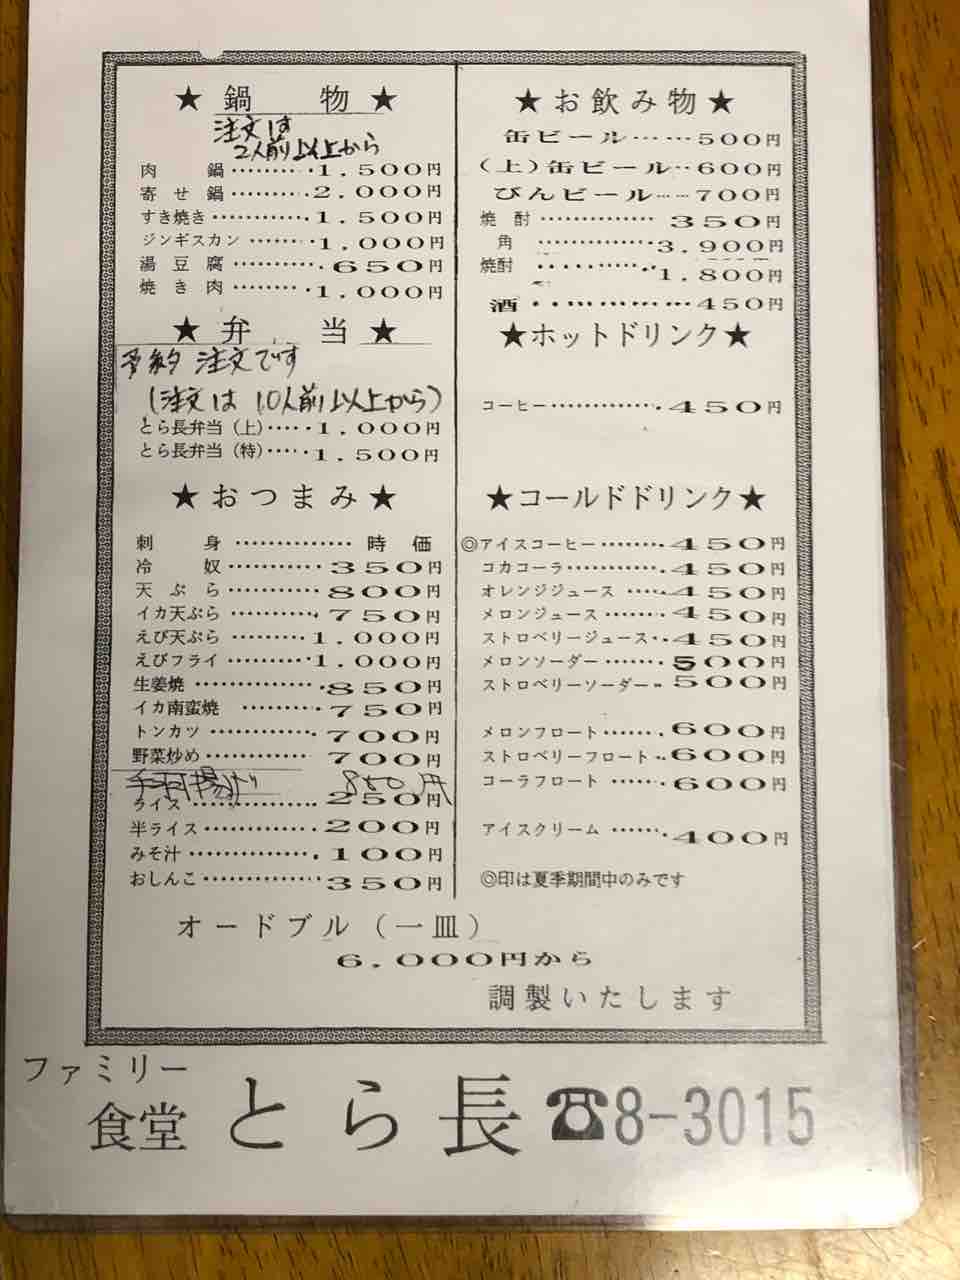 ★鍋　物★
注文は
2人前以上から
肉　鍋………1,500円
寄せ鍋………2,000円
すき焼き………1,500円
ジンギスカン………1,000円
湯豆腐………650円
焼き肉………1,000円
★弁　当★
予約 注文です
(注文は 10人前以上から)
とら長弁当（上）……1,000円
とら長弁当（特）……1,500円
★おつまみ★
刺　身…………時　価
冷　奴…………350円
天ぷら…………800円
イカ天ぷら………750円
えび天ぷら………1,000円
えびフライ………1,000円
生姜焼…………850円
イカ南蛮焼………750円
トンカツ…………700円
野菜炒め…………700円
手羽揚げ 850円
ライス…………250円
半ライス…………200円
みそ汁…………100円
おしんこ…………350円
★お飲み物★
缶ビール……500円
（上）缶ビール…600円
びんビール……700円
焼　酎…………350円
角…………3,900円
焼酎…………1,800円
酒…………450円
★ホットドリンク★
コーヒー…………450円
★コールドドリンク★
◎アイスコーヒー………450円
コカコーラ…………450円
オレンジジュース……450円
メロンジュース………450円
ストロベリージュース…450円
メロンソーダー………500円
ストロベリーソーダー…500円
メロンフロート………600円
ストロベリーフロート…600円
コーラフロート……600円
アイスクリーム………400円
◎印は夏季期間中のみです
オードブル（一皿）
6,000円から
調製いたします
ファミリー
食堂 とら長 ☎8-3015